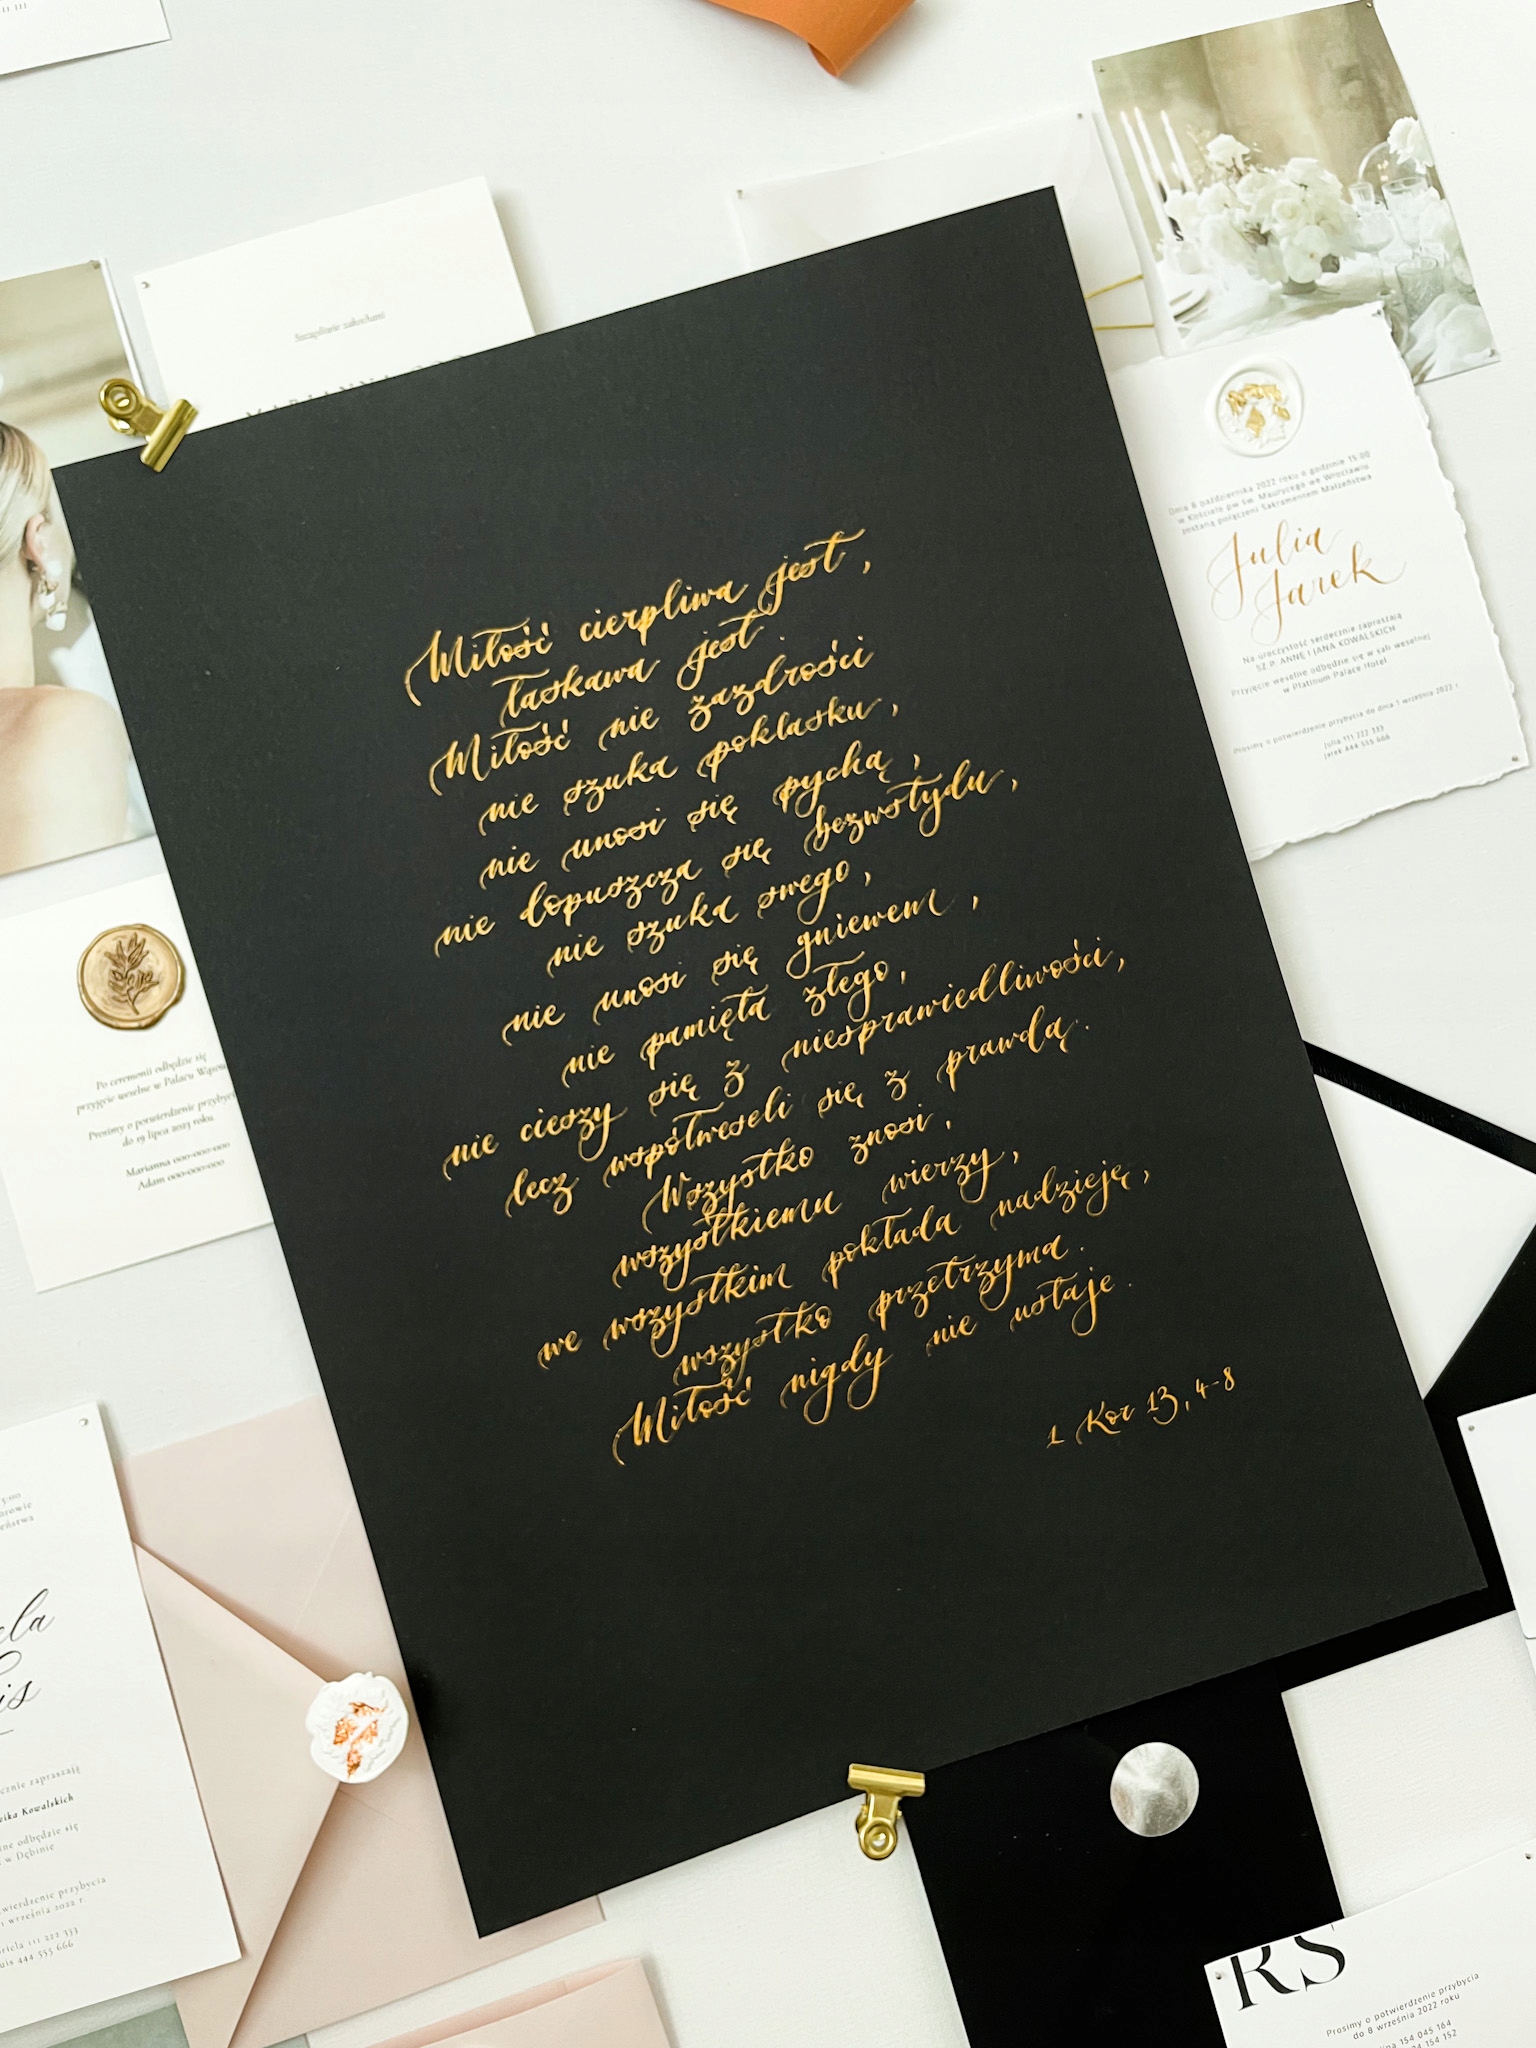 Szczęśliwie zakochani
Miłość cierpliwa jest,
łaskawa jest
Miłość nie zazdrości
nie szuka poklasku,
nie unosi się pychą,
nie dopuszcza się bezwstydu,
nie szuka swego,
nie unosi się gniewem,
nie pamięta złego,
nie cieszy się z niesprawiedliwości,
lecz współweseli się z prawdą.
Wszystko znosi,
wszystkiemu wierzy,
we wszystkim pokłada nadzieję,
wszystko przetrzyma.
Miłość nigdy nie ustaje.
1 Kor 13, 4-8
Dnia 8 października 2022 roku o godzinie 15:00
w Kościele pw św. Maurycego we Wrocławiu
zostaną połączeni Sakramentem Małżeństwa
Julia
Jarek
Na uroczystość serdecznie zapraszają
SZ.P. ANNĘ I JANA KOWALSKICH
Przyjęcie weselne odbędzie się w sali weselnej
w Platinum Palace Hotel
Prosimy o potwierdzenie przybycia do dnia 1 września 2022 r.
Julia 111 222 333
Jarek 444 555 666
Po ceremonii odbędzie się
przyjęcie weselne w Pałacu
Prosimy o potwierdzenie
do 19 lipca 2023 roku.
Marianna 000-000-000
Adam 000-000-000
Kowalskich
odbędzie się
w Dębinie
przybycia
września 2022 r
111 222 333
444 555 666
RS
Prosimy o potwierdzenie przybycia
do 8 września 2022 roku
154 045 164
154 152